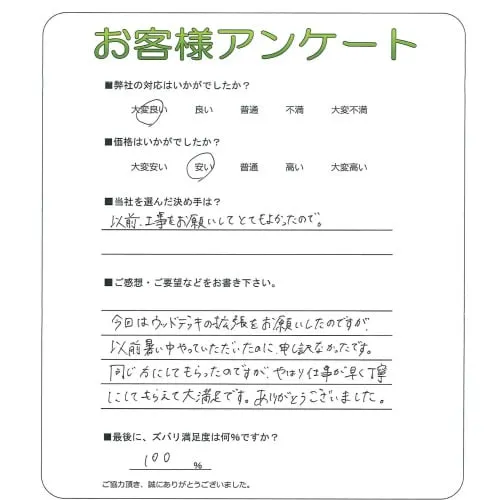 お客様アンケート
■弊社の対応はいかがでしたか？
大変良い 良い 普通 不満 大変不満
■価格はいかがでしたか？
大変安い 安い 普通 高い 大変高い
■当社を選んだ決め手は？
以前、工事をお願いしてとてもよかったので。
■ご感想・ご要望などをお書き下さい。
今回はウッドデッキの拡張をお願いしたのですが、
以前暑い中やっていただいたのに、申し訳なかったです。
同じ方にしてもらったのですが、やはり仕事が早く丁寧
にしてもらえて大満足です。ありがとうございました。
■最後に、ズバリ満足度は何％ですか？
100 ％
ご協力頂き、誠にありがとうございました。